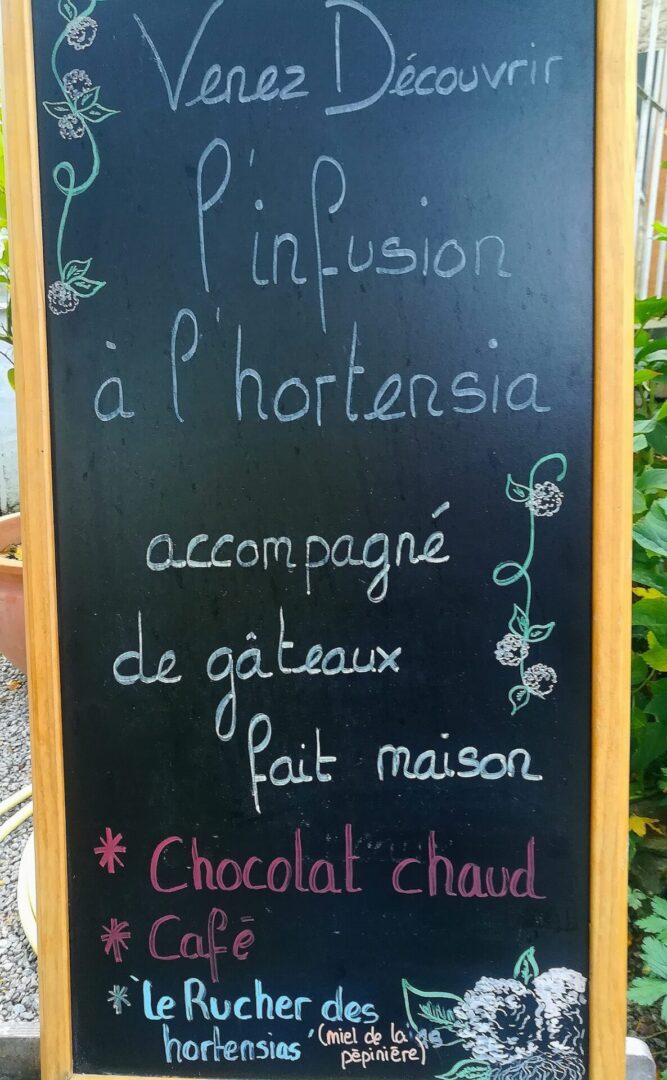 Venez Découvrir
l'infusion
à l'hortensia
accompagné
de gâteaux
fait maison
* Chocolat chaud
* Café
* 'Le Rucher des
hortensias' (miel de la
pépinière)